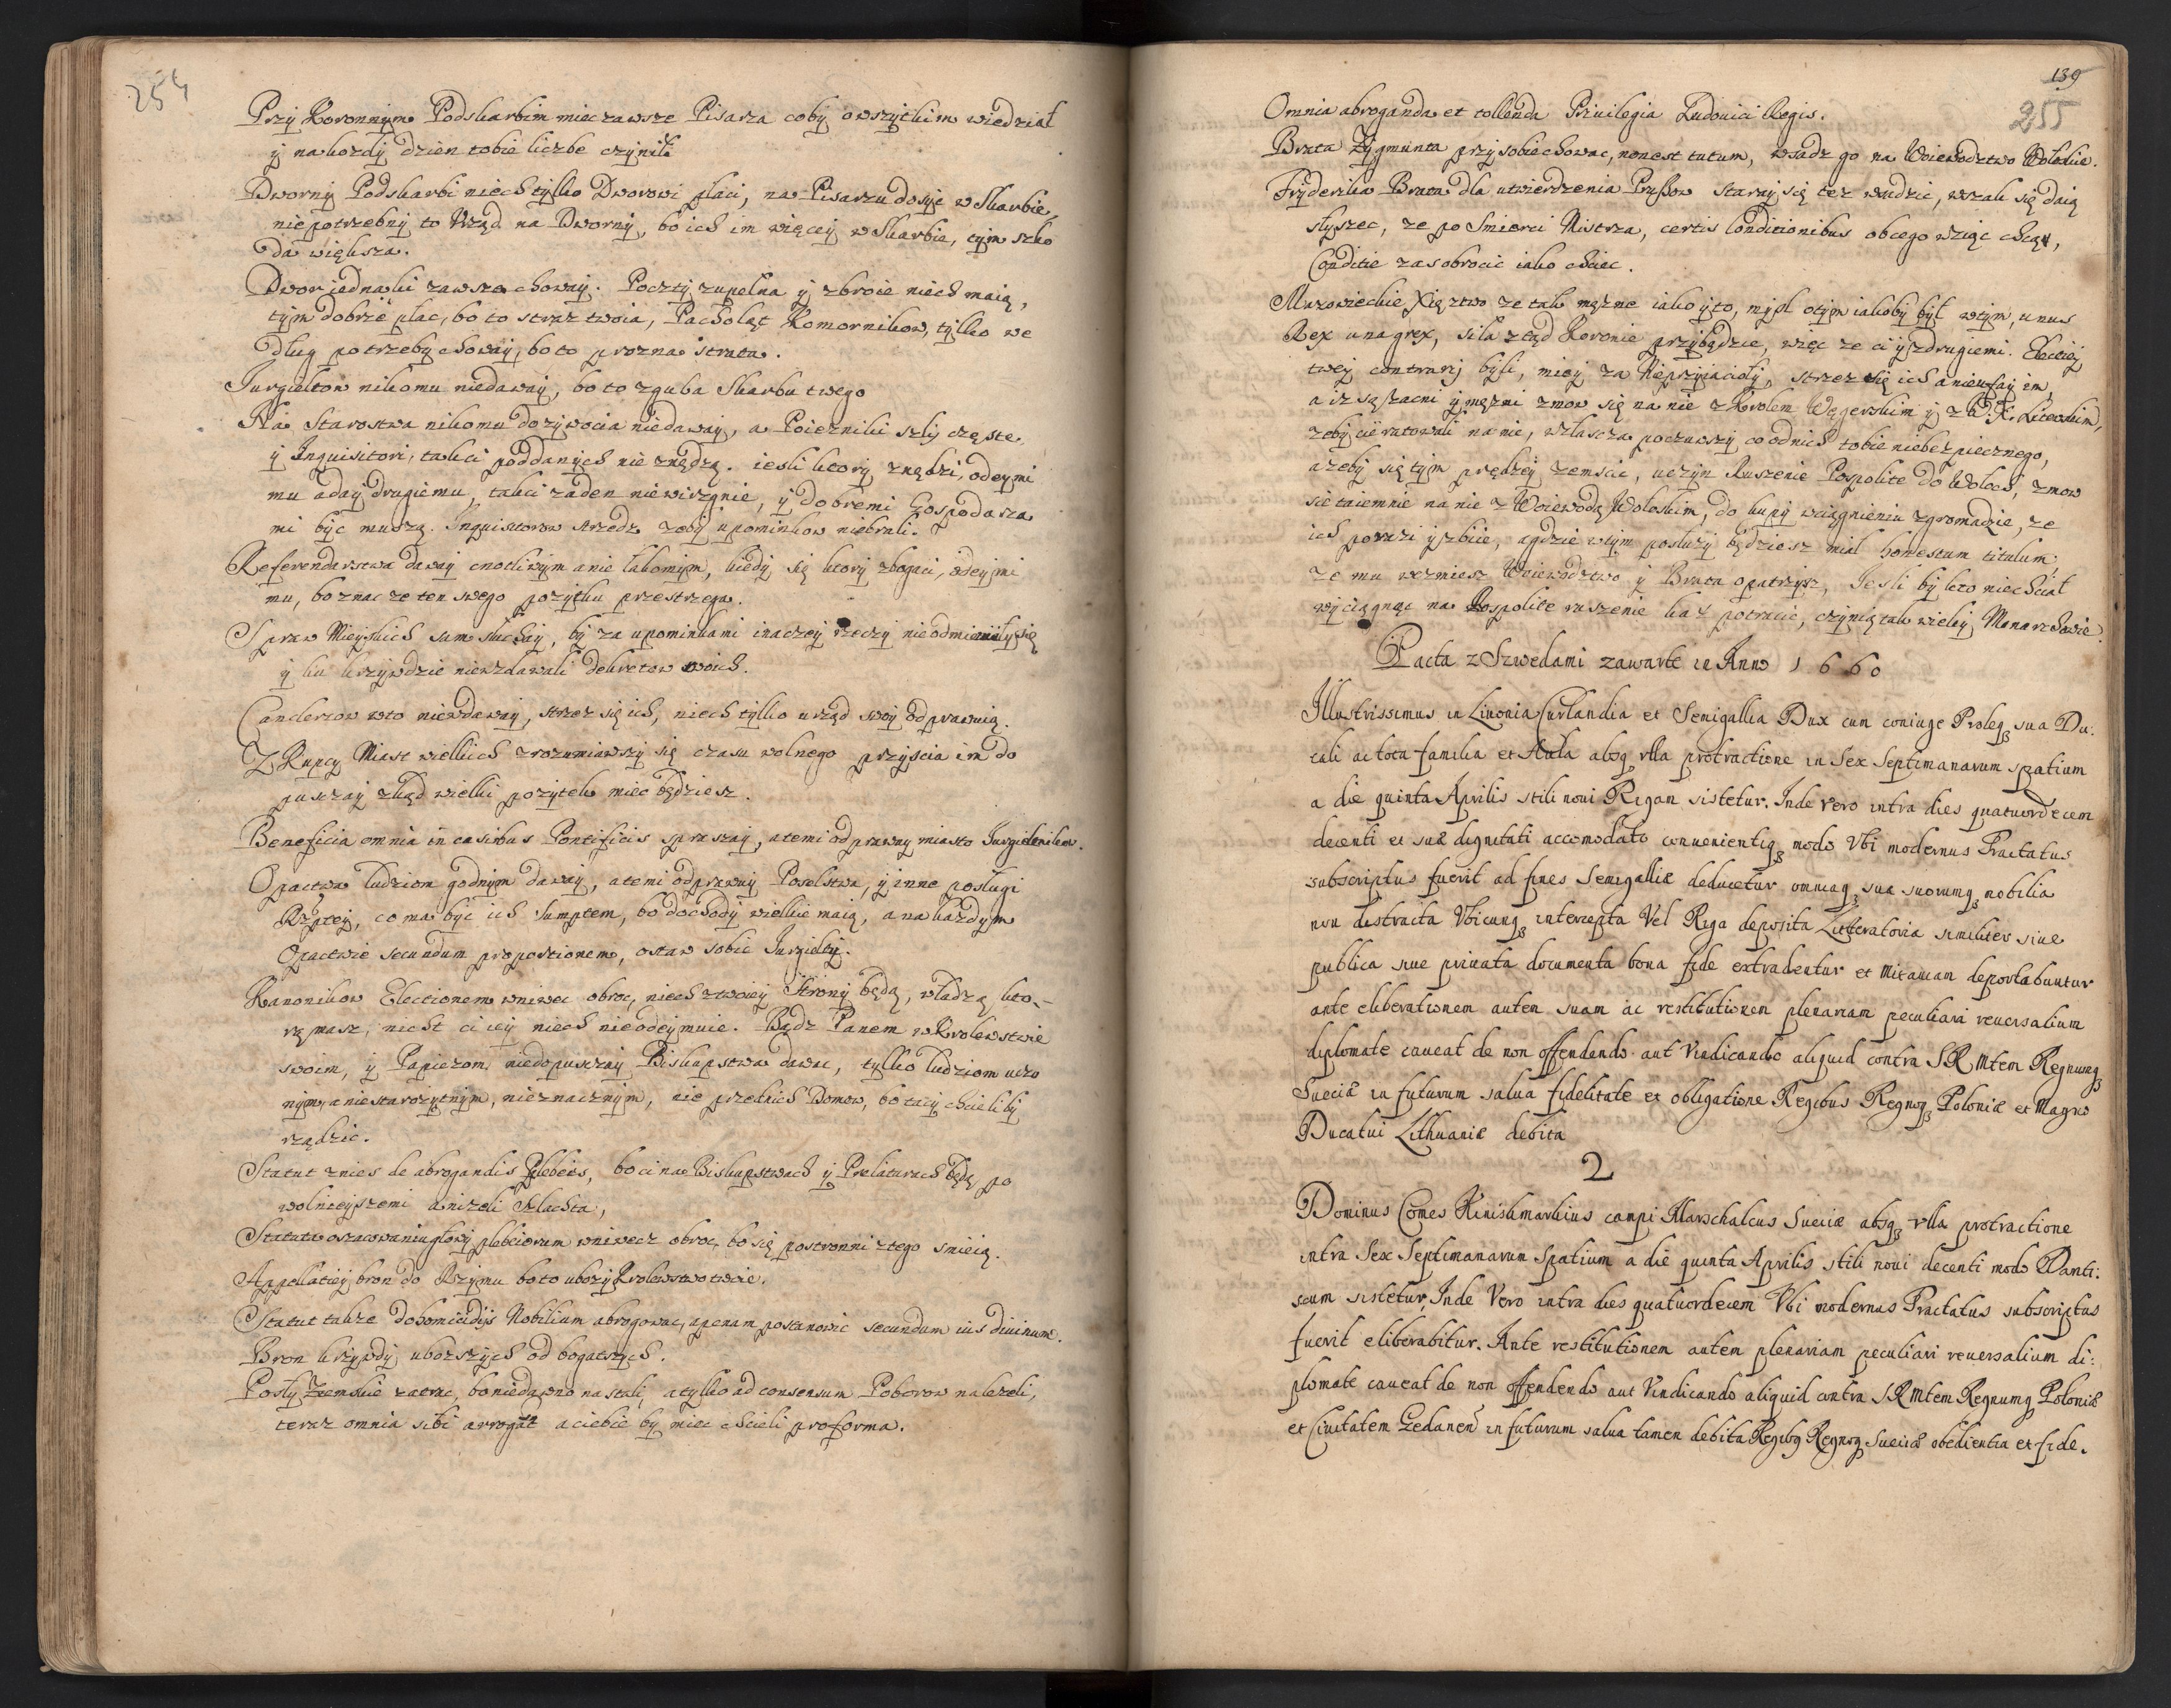 254
Przÿ Koronnym Podskarbim miec zawsze Pisarza cobÿ owszÿtkim wiedział
ÿ na kozdÿ dzien tobie liczbe czÿnił
Dwornÿ Podskarbi niech tÿlko Dworowi płaci, na Pisarzu dosÿc w Skarbie,
niepotrzebnÿ to Vrząd na Dwornÿ, bo ich im więceÿ w Skarbie, tÿm szko
da większa.
Dwor iednaki zawsze chowaÿ. Pocztÿ zupełna ÿ zbroie niech maią,
tÿm dobrze płac, bo to straz twoia, Pacholąt Komornikow, tÿlko we
dług potrzebÿ chowaÿ, bo to prozna strata.
Jurgieltow nikomu niedawaÿ, bo to zguba Skarbu twego
Na Starostwa nikomu dozÿwocia niedawaÿ, a Poiezniki szlÿ częste
ÿ Inquisitori, takci poddanÿch nie znędzą. iesli ktorÿ znędzi, odeÿmi
mu a daÿ drugiemu, takci zaden niewisgnie, ÿ dobremi Gospodarza
mi bÿc muszą. Inquisitorow strzedz zebÿ upominkow niebrali.
Referendarstwa dawaÿ cnotliwÿm a nie łakomÿm, kiedÿ się ktorÿ zbogaci, odeÿmi
mu, bo znac ze ten swego pozÿtku przestrzega.
Spraw Mieÿskich sam słuchaÿ, bÿ za upominkami inaczeÿ rzeczÿ nieodmienilÿ się
ÿ ku krzÿwdzie niewzdawali dekretow swoich.
Canclerzow wto niewdawaÿ, strzez się ich, niech tÿlko urząd swoÿ odprawuią.
Z Kupcÿ Miast wielkich zrozumiawszÿ się czasu wolnego przÿscia im do
pusczaÿ zkąd wielki pozÿtek miec będziesz.
Beneficia omnia in casibus Pontificis spraszaÿ, a temi odprawuÿ miasto Jurgieltnikow.
Opactwa ludziom godnÿm dawaÿ, a temi odprawuÿ Poselstwa, ÿ inne posługi
Rzpteÿ, co ma bÿc ich Sumptem, bo dochodÿ wielkie maią, a na kazdÿm
Opactwie secundum proportionem, ostaw sobie Jurgieltÿ.
Kanonikow Electionem wniwec obroc, niech z twoieÿ stronÿ będą, władzą kto-
rą masz, nicht ci ieÿ niech nieodeÿmuie. Bądz Panem w Krolewstwie
swoim, ÿ Papiezom niedopusczaÿ Biskupstwa dawac, tÿlko ludziom uczo
nÿm, a niestarozÿtnÿm, nieznacznÿm, nie przednich Domow, bo tacÿ chcielibÿ
rządzic.
Statut znies de abrogandis plebeis, bo ci na Biskupstwach ÿ Prelaturach będą po
wolnieÿszemi a nizeli Szlachta,
Statut o szacowaniu głowÿ plebeiorum wniwecz obroc, bo się postronni z tego smieią.
Appellatiÿ bron do Rzÿmu bo to ubozÿ Krolewstwo twoie.
Statut takze de homicidÿs Nobilium abrogowac, a penam postanowic secundum ius diuinum.
Bron krzÿwdÿ ubozszÿch od bogatszÿch.
Posłÿ Ziemskie zatrac, bo niedawno nastali, a tÿlko ad consensum Poborow nalezeli,
teraz omnia sibi arrogãt a ciebie by miec chcieli pro forma.
139
255
Omnia abroganda et tollenda Priuilegia Ludouici Regis.
Brata Zÿgmunta przÿ sobie chowac, non est tutum, wsadz go na Woiewodztwo Wołoskie.
Frÿderika Brata dla utwierdzenia Prussow staraÿ się tez wsadzic, wszak się daią
słÿszec, ze po Smierci Mistrza, certis Conditionibus obcego wziąc chcą,
Conditie zas obrocic iako chciec.
Mazowieckie Xięztwo ze tak męzne iako ÿ to, mÿsl o tÿm iakobÿ bÿł wtÿm, unus
Rex una grex, siła ztąd Koronie przÿbędzie, więc ze ci ÿ z drugiemi. Electiÿ
tweÿ contrarÿ bÿli, mieÿ za Nieprzÿiaciolÿ, strzez się ich a nieufaÿ im
a iz są zacni ÿ męzni zmow się na nie z Krolem Węgerskim ÿ z W. X. Litewskim,
zebÿ cie ratowali na nie, własczza poczuwszÿ co od nich tobie niebezpiecznego,
a zebÿ się tÿm prędzeÿ zemscic, uczÿn Ruszenie Pospolite do Wołoch, zmow
sie taiemnie na nie z Woiewodą Wołoskim, do kupÿ wciągnieniu zgromadzie, ze
ich porazi ÿ zbiie, a gdzie wtÿm posłuzÿ będziesz miał honestum titulum,
ze mu wezmiesz Woiewodztwo ÿ Brata opatrzÿsz, Iesli bÿ kto niechciał
wÿciągnąc na Pospolite ruszenie kaz potracic, czÿnią tak wielcÿ Monarchowie.
Pacta z Szwedami zawarte in Anno 1660
Illustrissimus in Liuonia Curlandia et Semigallia Dux cum coniuge Proleqꝫ sua Du:
cali ac tota familia et Aula absqꝫ vlla protractione in Sex Septimanarum spatium
a die quinta Aprilis stili noui Rigam sistetur. Inde vero intra dies quatuordecem
decenti et suæ dignitati accomodato conuenientiqꝫ modo Vbi modernus Tractatus
subscriptus fuerit ad fines Semigalliæ deducetur omniaqꝫ sua suorumqꝫ mobilia
non distracta Vbicunqꝫ intercepta Vel Riga deposita Litteratoria similiter siue
publica siue priuata documenta bona fide extradentur et Mitauiam deportabuntur
ante eliberationem autem suam ac restitutionem plenariam peculiari reuersalium
diplomate caueat de non offendendo aut Vindicando aliquid contra SRMtem Regnumqꝫ
Sueciæ in futurum salua fidelitate et obligatione Regibus Regnoqꝫ Poloniæ et Magno
Ducatui Lithuaniæ debita
2
Dominus Comes Kinishmarkius campi Marschalcus Sueciæ absqꝫ vlla protractione
intra Sex Septimanarum Spatium a die quinta Aprilis stili noui decenti modo Danti:
scum sistetur, Inde Vero intra dies quatuordecem Vbi modernus Tractatus subscriptus
fuerit eliberabitur. Ante restitutionem autem plenariam peculiari reuersalium di:
plomate caueat de non offendendo aut Vindicando aliquid contra SRMtem Regnumqꝫ Poloniæ
et Ciuitatem Gedanen̄ in futurum salua tamen debita Regibqꝫ Regnoqꝫ Sueciæ obedientia et fide.